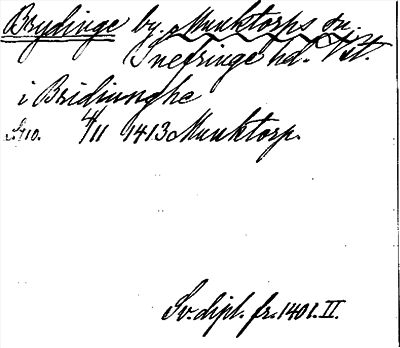 Brydinge by. Munktorps sn.
Snefringe hd. Vstm.
i Bridiunghe
4/11 1413 Munktorp.
Sv. dipl. fr. 1401. II.